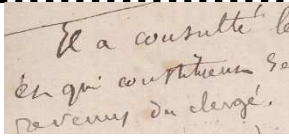 Il a consulté le
en qui constituent se
revenus du clergé.